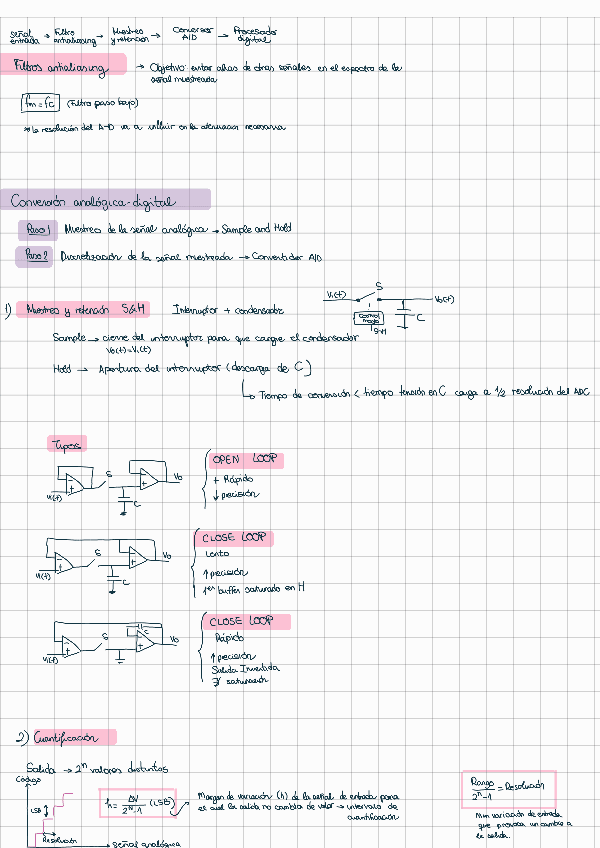 Señal entrada → Filtro antialiasing → Muestreo y retención → Conversor A/D → Procesador digital
Filtros antialiasing → Objetivo: evitar alias de otras señales en el espectro de la
señal muestreada
fm = fc (Filtro paso bajo)
* la resolución del A-D va a influir en la atenuación necesaria
Conversión analógica-digital
Paso 1 Muestreo de la señal analógica → Sample and Hold
Paso 2 Discretización de la señal muestreada → Convertidor A/D
1) Muestreo y retención S&H Interruptor + condensador
Vi(t) S Vo(t)
Control modo
C
S/H
Sample → cierre del interruptor para que cargue el condensador
Vo(t)=Vi(t)
Hold → Apertura del interruptor (descarga de C)
↳ Tiempo de conversión < tiempo tensión en C caiga a 1/2 resolución del ADC
Tipos
Vi(t) S C Vo
OPEN LOOP
+ Rápido
↓ precisión
Vi(t) S C Vo
CLOSE LOOP
Lento
↑ precisión
1er buffer saturado en H
Vi(t) S C Vo
CLOSE LOOP
Rápido
↑ precisión
Salida Invertida
∄ saturación
2) Cuantificación
Salida → 2ⁿ valores distintos
Código
LSB
Resolución
→ Señal analógica
h = ΔV / 2ᴺ-1 (LSB)
Margen de variación (h) de la señal de entrada para
el cual la salida no cambia de valor → intervalo de
cuantificación
Rango / 2ⁿ-1 = Resolución
Mín variación de entrada
que provoca un cambio a
la salida.